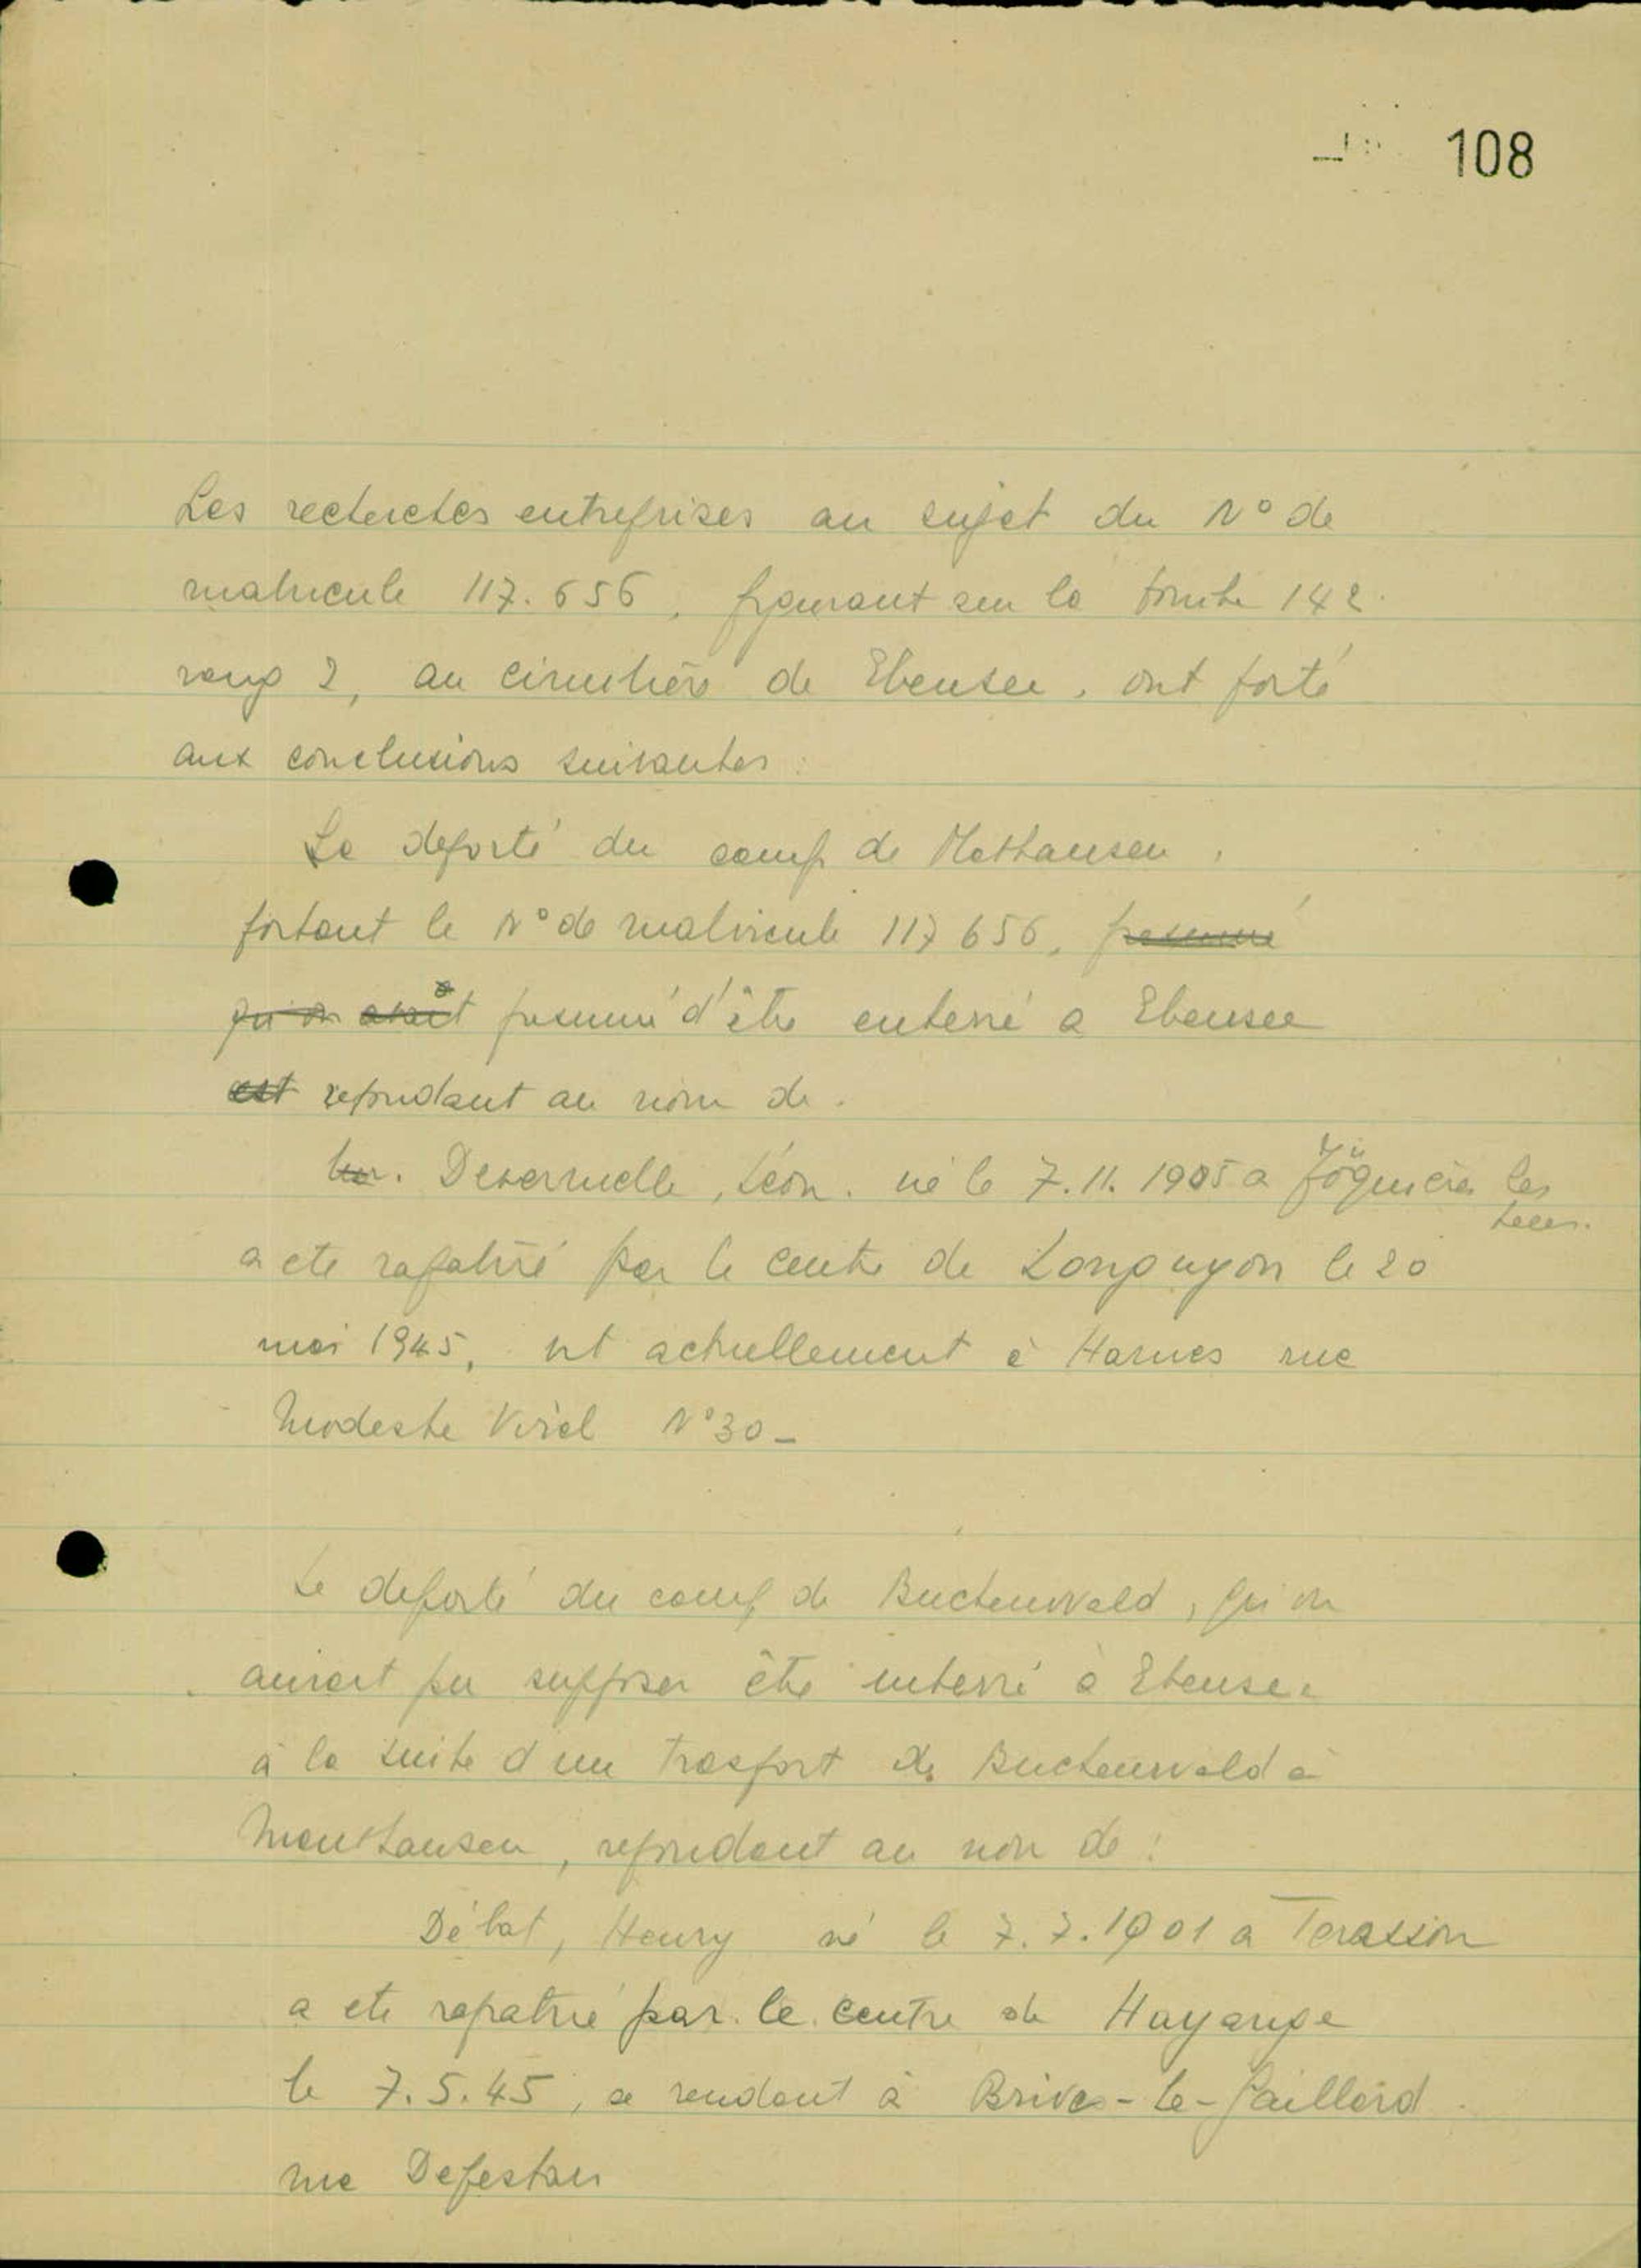 108
Les recherches entreprises au sujet du N° de
matricule 117.656, figurant sur la tombe 142.
rang 2, au cimetière de Ebensee, ont porté
aux conclusions suivantes:
Le deporté du camp de Mathausen,
portant le N° de matricule 117 656, presumé
qu'on avait presumé d'être enterré a Ebensee
est repondant au nom de.
Léon. né le 7.11.1905 a les
a ete rapatrié par le centre de Longuyon le 20
mai 1945, est actuellement à Harnes rue
Modeste Virel N°30-
Le deporté du camp de Buchenwald, qu'on
aurait pu supposer être enterré à Ebensee
à la suite d'un trasport de Buchenwald à
Mauthausen, repondant au nom de:
Délat, Henry né le 7.7.1901 a Terasson
a ete rapatrié par le centre de Hayange
le 7.5.45, se rendant à Brives-le-Gaillard.
rue